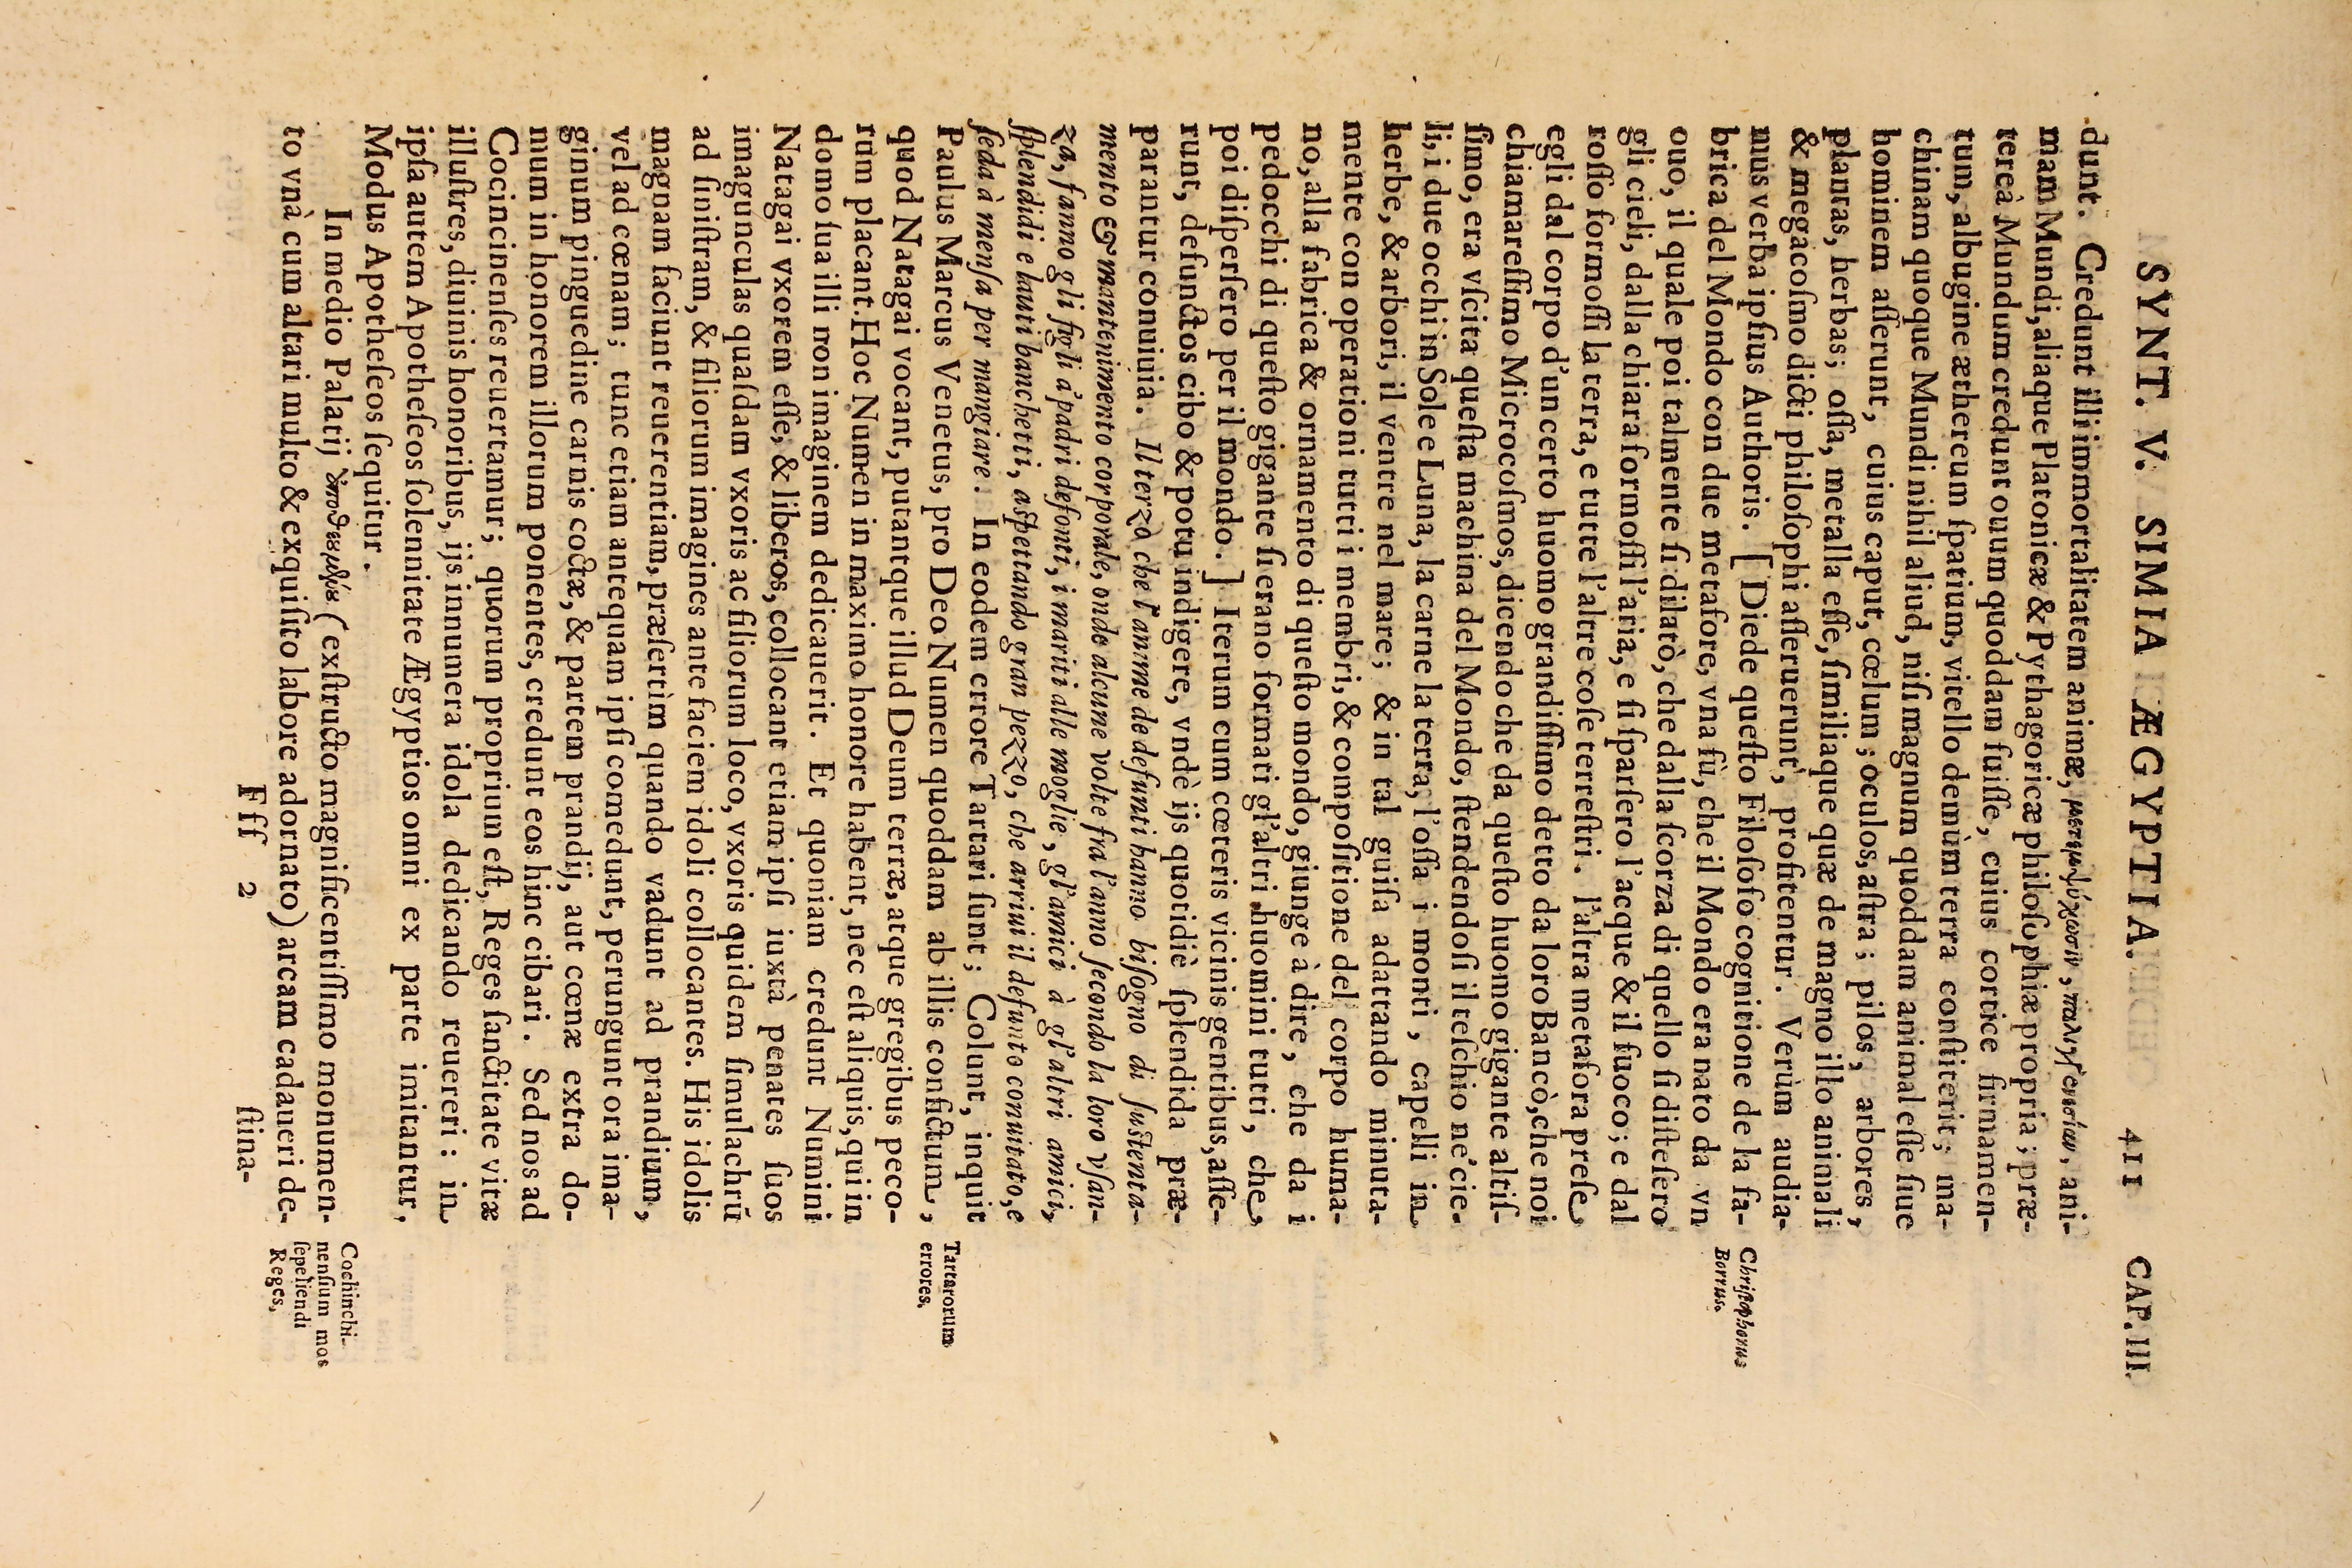 SYNT. V. SIMIA ÆGYPTIA. 411 CAP. III.
dunt. Credunt illi immortalitatem animæ, μετεμψύχωσιν, παλιγγενεσίαν, ani-
mam Mundi, aliaque Platonicæ & Pythagoricæ philoſophiæ propria; præ-
tereà Mundum credunt ouum quoddam fuiſſe, cuius cortice firmamen-
tum, albugine æthereum ſpatium, vitello demùm terra conſtiterit; ma-
chinam quoque Mundi nihil aliud, niſi magnum quoddam animal eſſe ſiue
hominem aſſerunt, cuius caput, cœlum; oculos, aſtra; pilos, arbores,
plantas, herbas; oſſa, metalla eſſe, ſimiliaque quæ de magno illo animali
& megacoſmo dicti philoſophi aſſeruerunt, profitentur. Verùm audia-
mus verba ipſius Authoris. [Diede queſto Filoſofo cognitione de la fa-
Chriſtophorus
Borrus.
brica del Mondo con due metafore, vna fù, che il Mondo era nato da vn
ouo, il quale poi talmente ſi dilatò, che dalla ſcorza di quello ſi diſteſero
gli cieli, dalla chiara formoſſi l'aria, e ſi ſparſero l'acque & il fuoco; e dal
roſſo formoſſi la terra, e tutte l'altre coſe terreſtri. l'altra metafora preſe
egli dal corpo d'un certo huomo grandiſſimo detto da loro Bancò, che noi
chiamareſſimo Microcoſmos, dicendo che da queſto huomo gigante altiſ-
ſimo, era vſcita queſta machina del Mondo, ſtendendoſi il teſchio ne' cie-
li, i due occhi in Sole e Luna, la carne la terra, l'oſſa i monti, capelli in
herbe, & arbori, il ventre nel mare; & in tal guiſa adattando minuta-
mente con operationi tutti i membri, & compoſitione del corpo huma-
no, alla fabrica & ornamento di queſto mondo, giunge à dire, che da i
pedocchi di queſto gigante ſi erano formati gl'altri huomini tutti, che
poi diſperſero per il mondo.] Iterum cum cæteris vicinis gentibus, aſſe-
runt, defunctos cibo & potu indigere, vndè ijs quotidiè ſplendida præ-
parantur conuiuia. Il terzo che l'anime de defunti hanno biſogno di ſuſtenta-
mento & mantenimento corporale, onde alcune volte fra l'anno ſecondo la loro vſan-
za, fanno gli figli a' padri defonti, i mariti alle moglie, gl'amici à gl'altri amici,
ſplendidi e lauti banchetti, aſpettando gran pezzo, che arriui il defunto conuitato, e
ſeda à menſa per mangiare. In eodem errore Tartari ſunt; Colunt, inquit
Tartarorum
errores.
Paulus Marcus Venetus, pro Deo Numen quoddam ab illis confictum,
quod Natagai vocant, putantque illud Deum terræ, atque gregibus peco-
rùm placant. Hoc Numen in maximo honore habent, nec eſt aliquis, qui in
domo ſua illi non imaginem dedicauerit. Et quoniam credunt Numini
Natagai vxorem eſſe, & liberos, collocant etiam ipſi iuxtà penates ſuos
imagunculas quaſdam vxoris ac filiorum loco, vxoris quidem ſimulachrū
ad ſiniſtram, & filiorum imagines ante faciem idoli collocantes. His idolis
magnam faciunt reuerentiam, præſertìm quando vadunt ad prandium,
vel ad cœnam; tunc etiam antequam ipſi comedunt, perungunt ora ima-
ginum pinguedine carnis coctæ, & partem prandij, aut cœnæ extra do-
mum in honorem illorum ponentes, credunt eos hinc cibari. Sed nos ad
Cocincinenſes reuertamur; quorum proprium eſt, Reges ſanctitate vitæ
illuſtres, diuinis honoribus, ijs innumera idola dedicando reuereri: in
ipſa autem Apotheſeos ſolennitate Ægyptios omni ex parte imitantur,
Modus Apotheſeos ſequitur.
In medio Palatij (exſtructo magnificentiſſimo monumen-
Cochinchi-
nenſium mos
ſepeliendi
Reges.
to vnà cum altari multo & exquiſito labore adornato) arcam cadaueri de-
Fff 2 ſtina-